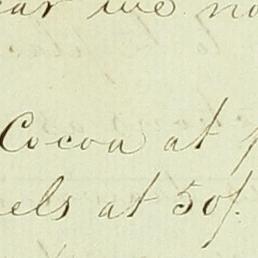 ear we no
Cocoa at
els at 50/.